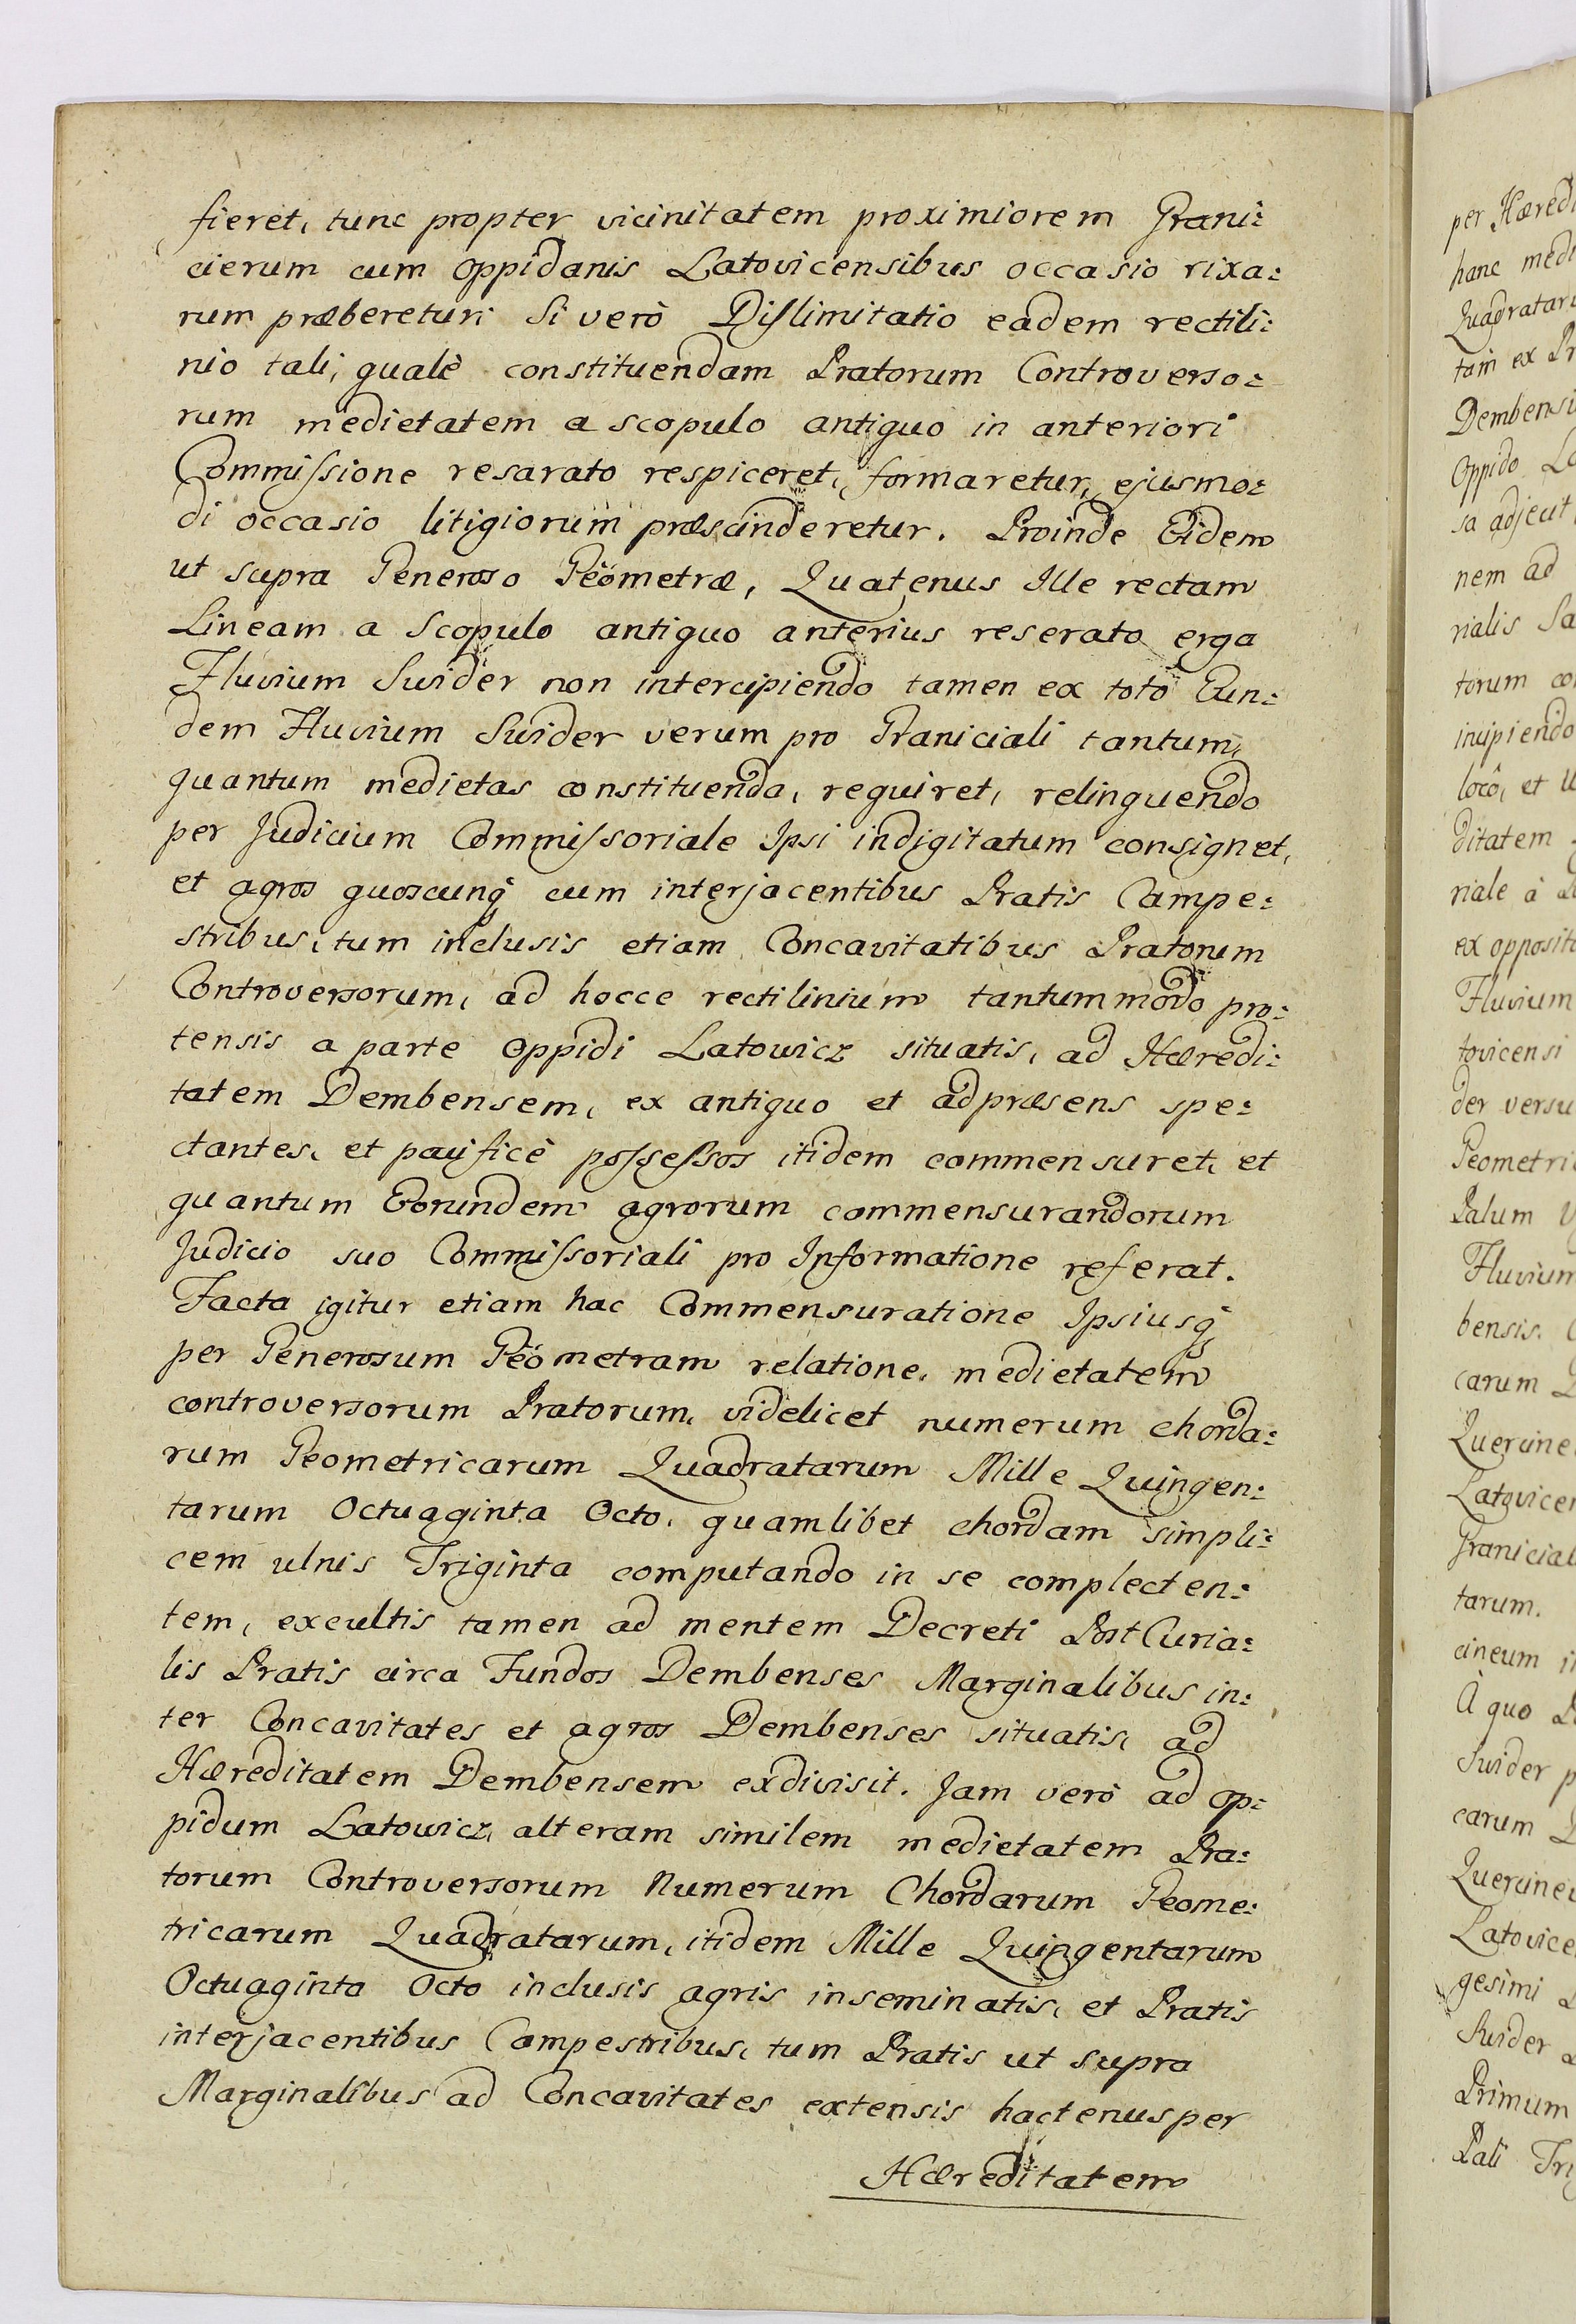 fieret, tunc propter vicinitatem proximiorem Grani:
cierum cum Oppidanis Latovicensibus occasio rixa:
rum præberetur; Si verò Dislimitatio eadem rectili:
nio tali, qualè constituendam Pratorum Controverso:
rum medietatem a scopulo antiquo in anteriori
Commissione resarato respiceret, formaretur, ejusmo:
di occasio litigiorum præscinderetur. Proinde Eidem
ut supra Generoso Geömetræ, Quatenus Ille rectam
Lineam a Scopulo antiquo anterius reserato erga
Fluvium Swider non intercipiendo tamen ex toto Eun:
dem Fluvium Swider verum pro Graniciali tantum,
quantum medietas constituenda, requiret, relinquendo
per Judicium Commissoriale Ipsi indigitatum consignet,
et agros quoscunq́ cum interjacentibus Pratis Campe:
stribus, tum inclusis etiam Concavitatibus Pratorum
Controversorum, ad hocce rectilinium tantummodo pro:
tensis a parte Oppidi Latowicz situatis, ad Hæredi:
tatem Dembensem, ex antiquo et adpræsens spe:
ctantes, et pacificè possessos itidem commensuret, et
quantum Eorundem agrorum commensurandorum
Judicio suo Commissoriali pro Informatione referat.
Facta igitur etiam hac Commensuratione Ipsiusq́
per Generosum Geömetram relatione, medietatem
controversorum Pratorum, videlicet numerum chorda:
rum Geometricarum Quadratarum Mille Quingen:
tarum Octuaginta Octo, quamlibet chordam simpli:
cem ulnis Triginta computando in se complecten:
tem, excultis tamen ad mentem Decreti PostCuria:
lis Pratis circa Fundos Dembenses Marginalibus in:
ter Concavitates et agros Dembenses situatis, ad
Hæreditatem Dembensem exdivisit. Jam verò ad Op:
pidum Latowicz, alteram similem medietatem Pra:
torum Controversorum Numerum Chordarum Geome:
tricarum Quadratarum, itidem Mille Quingentarum
Octuaginta Octo inclusis agris inseminatis, et Pratis
interjacentibus Campestribus, tum Pratis ut supra
Marginalibus ad Concavitates extensis hactenus per
Hæreditatem
per Hæredi
hanc medi
Quadrataru
tam ex Pr
Dembensi
Oppido La
sa adjecit
nem ad
rialis Sa
torum co
incipiendo
locô, et
ditatem
riale à
ex opposito
Fluvium
tovicensi
der versu
Geometri
Palum
Fluvium
bensis.
carum
Quercine
Latovicen
Granicial
tarum.
cineum in
À quo
Swider p
carum
Quercineu
Latovice
gesimi
Swider
Primum
Pali Tri